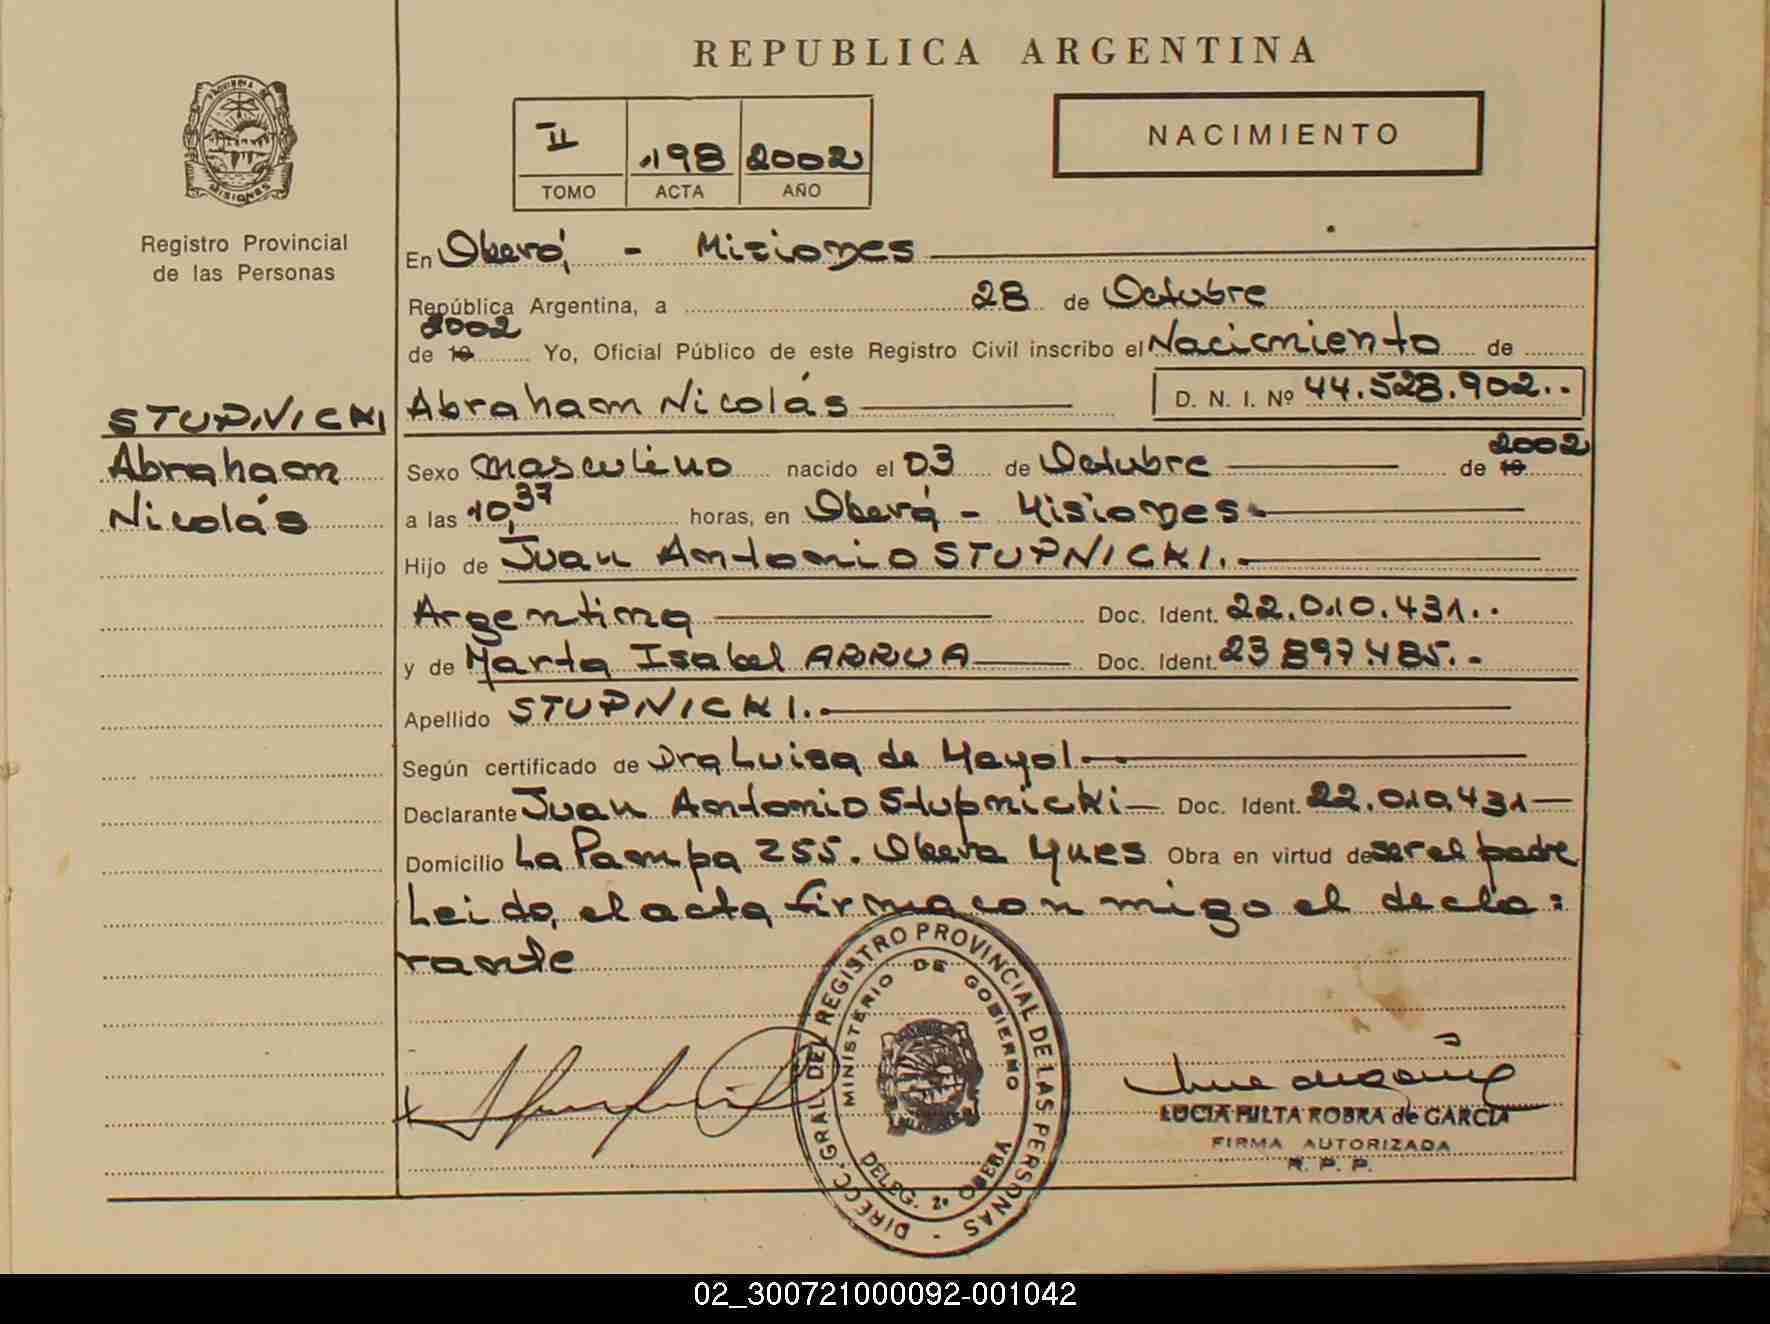 REPUBLICA ARGENTINA
PROVINCIA DE
MISIONES
Registro Provincial
de las Personas
II
.198
2002
TOMO
ACTA
AÑO
NACIMIENTO
En Oberá, - Misiones
República Argentina, a 28 de Octubre
2002
de 19 Yo, Oficial Público de este Registro Civil inscribo el Nacimiento de
Abraham Nicolás D. N. I. Nº 44.528.902..
STUPNICKI
Abraham
Nicolás
2002
Sexo masculino nacido el 03 de Octubre de 19
a las 10,37 horas, en Oberá - Misiones
Hijo de Juan Antonio STUPNICKI.
Argentina Doc. Ident. 22.010.431..
y de Marta Isabel ARRUA Doc. Ident. 23.897.485.-
Apellido STUPNICKI.
Según certificado de Dra Luisa de Mayol
Declarante Juan Antonio Stupnicki Doc. Ident. 22.010.431
Domicilio La Pampa 255. Obera Mnes Obra en virtud de ser el padre
Leido, el acta firma con migo el decla=
rante
DIRECC. GRAL. DEL REGISTRO PROVINCIAL DE LAS PERSONAS -
MINISTERIO DE GOBIERNO
DELEG. 2º OBERA
LUCIA HILTA ROBRA de GARCIA
FIRMA AUTORIZADA
R. P. P.
02_300721000092-001042